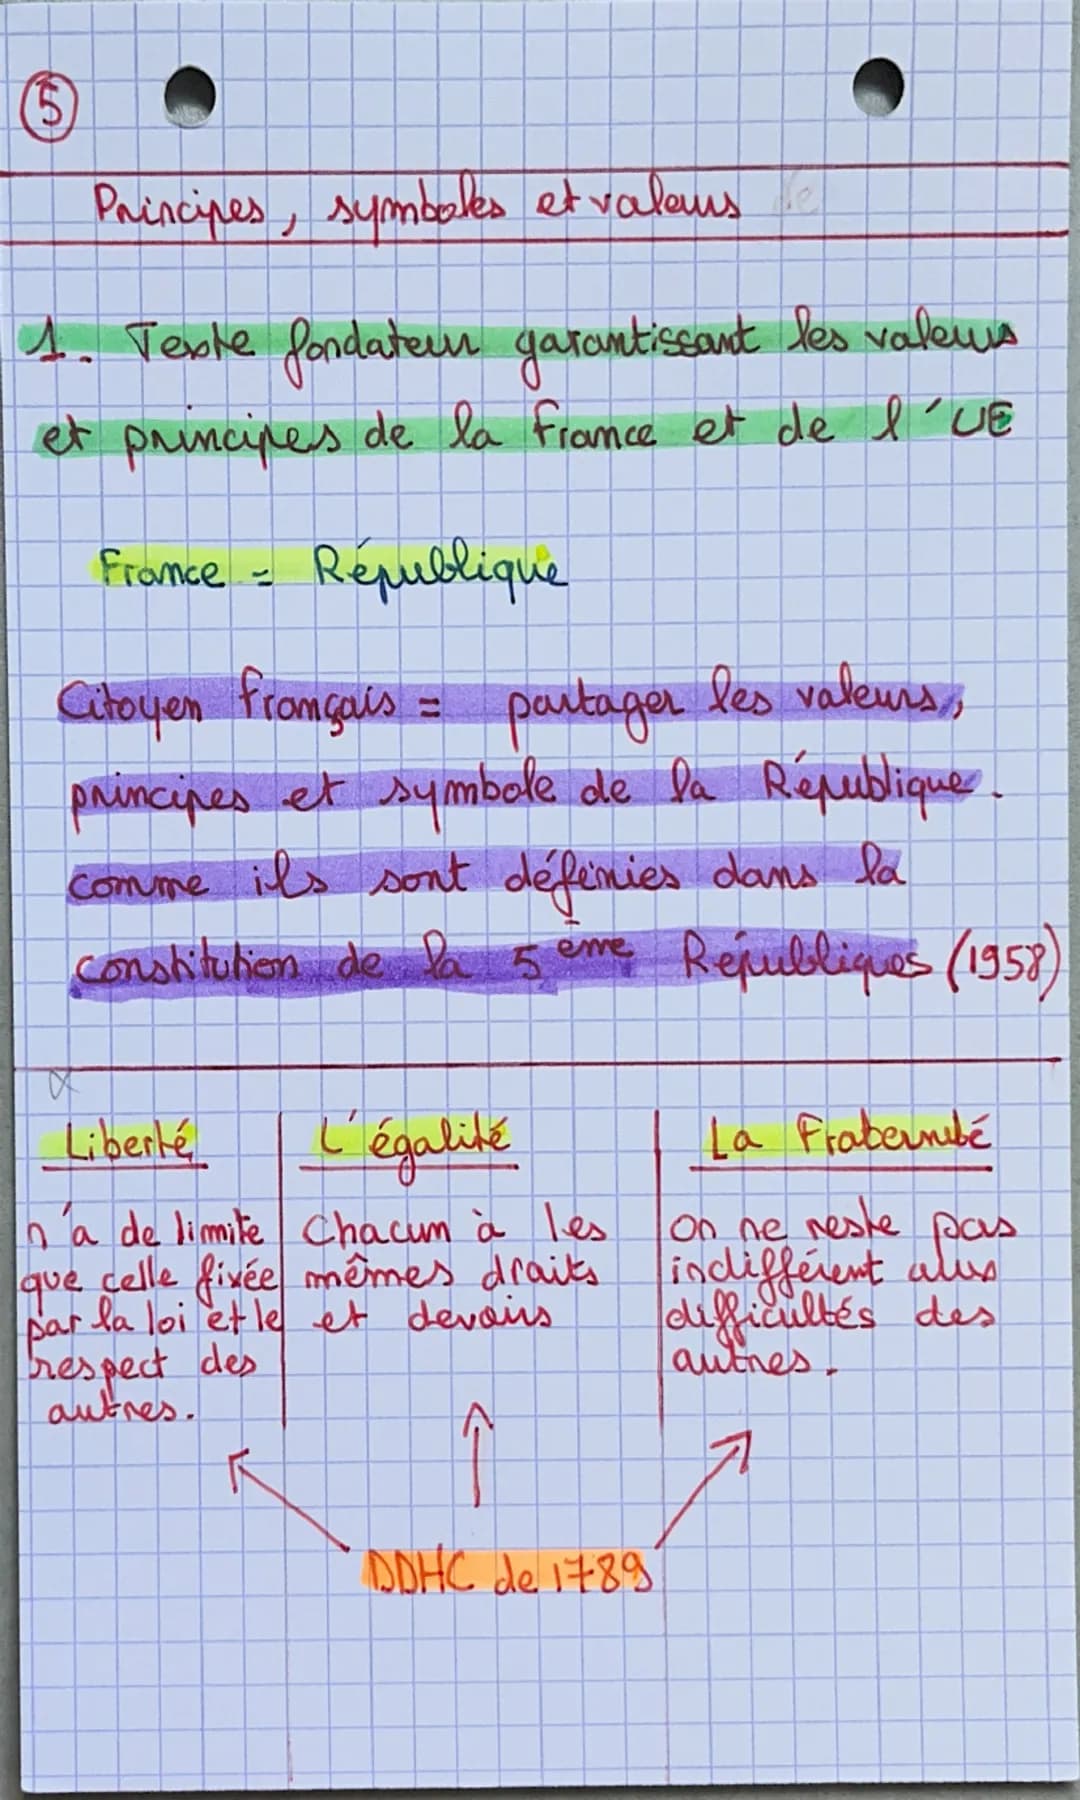 5
Principes, symboles et valeurs de
1. Texte fondateur garantissant les valeurs
et principes de la France et de l'UE
France = République
Citoyen français = partager les valeurs,
principes et symbole de la République.
comme ils sont définies dans la
constitution de la 5ème Républiques (1958)
Liberté
n'a de limite
que celle fixée
par la loi et le
respect des
autres.
L'égalité
Chacun à les
mêmes droits
et devoirs
La Fraternité
On ne reste pas
indifférent aux
difficultés des
autres.
DDHC de 1789